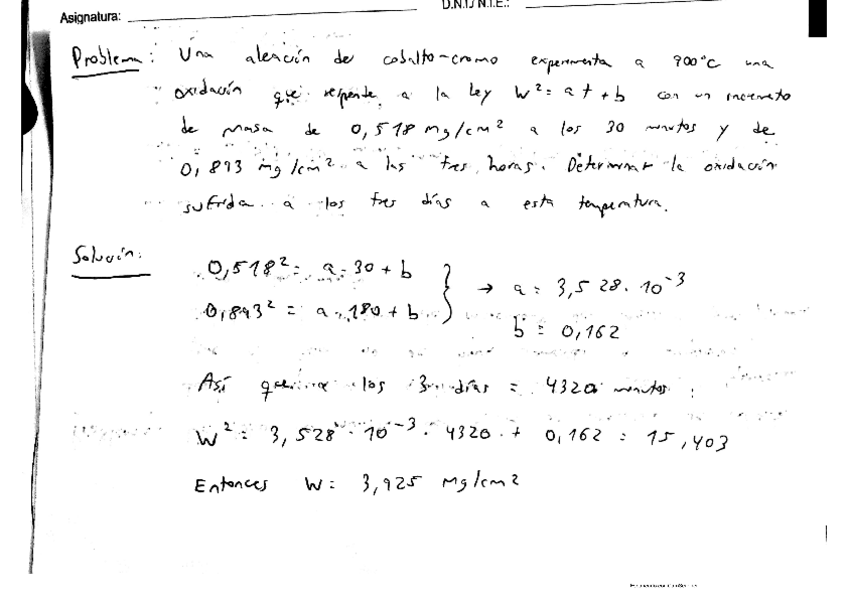 Asignatura:
D.N.I./ N.I.E.:
Problema: Una aleación de cobalto-cromo experimenta a 900°C una
oxidación que responde a la Ley W² = at + b con un incremento
de masa de 0,518 mg/cm² a los 30 minutos y de
0,893 mg/cm² a las tres horas. Determinar la oxidación
sufrida a los tres días a esta temperatura.
Solución:
0,518² = a·30 + b
0,893² = a·180 + b } → a = 3,528·10⁻³
b = 0,162
Así que a los 3 días = 4320 minutos:
W² = 3,528·10⁻³·4320 + 0,162 = 15,403
Entonces W = 3,925 mg/cm²